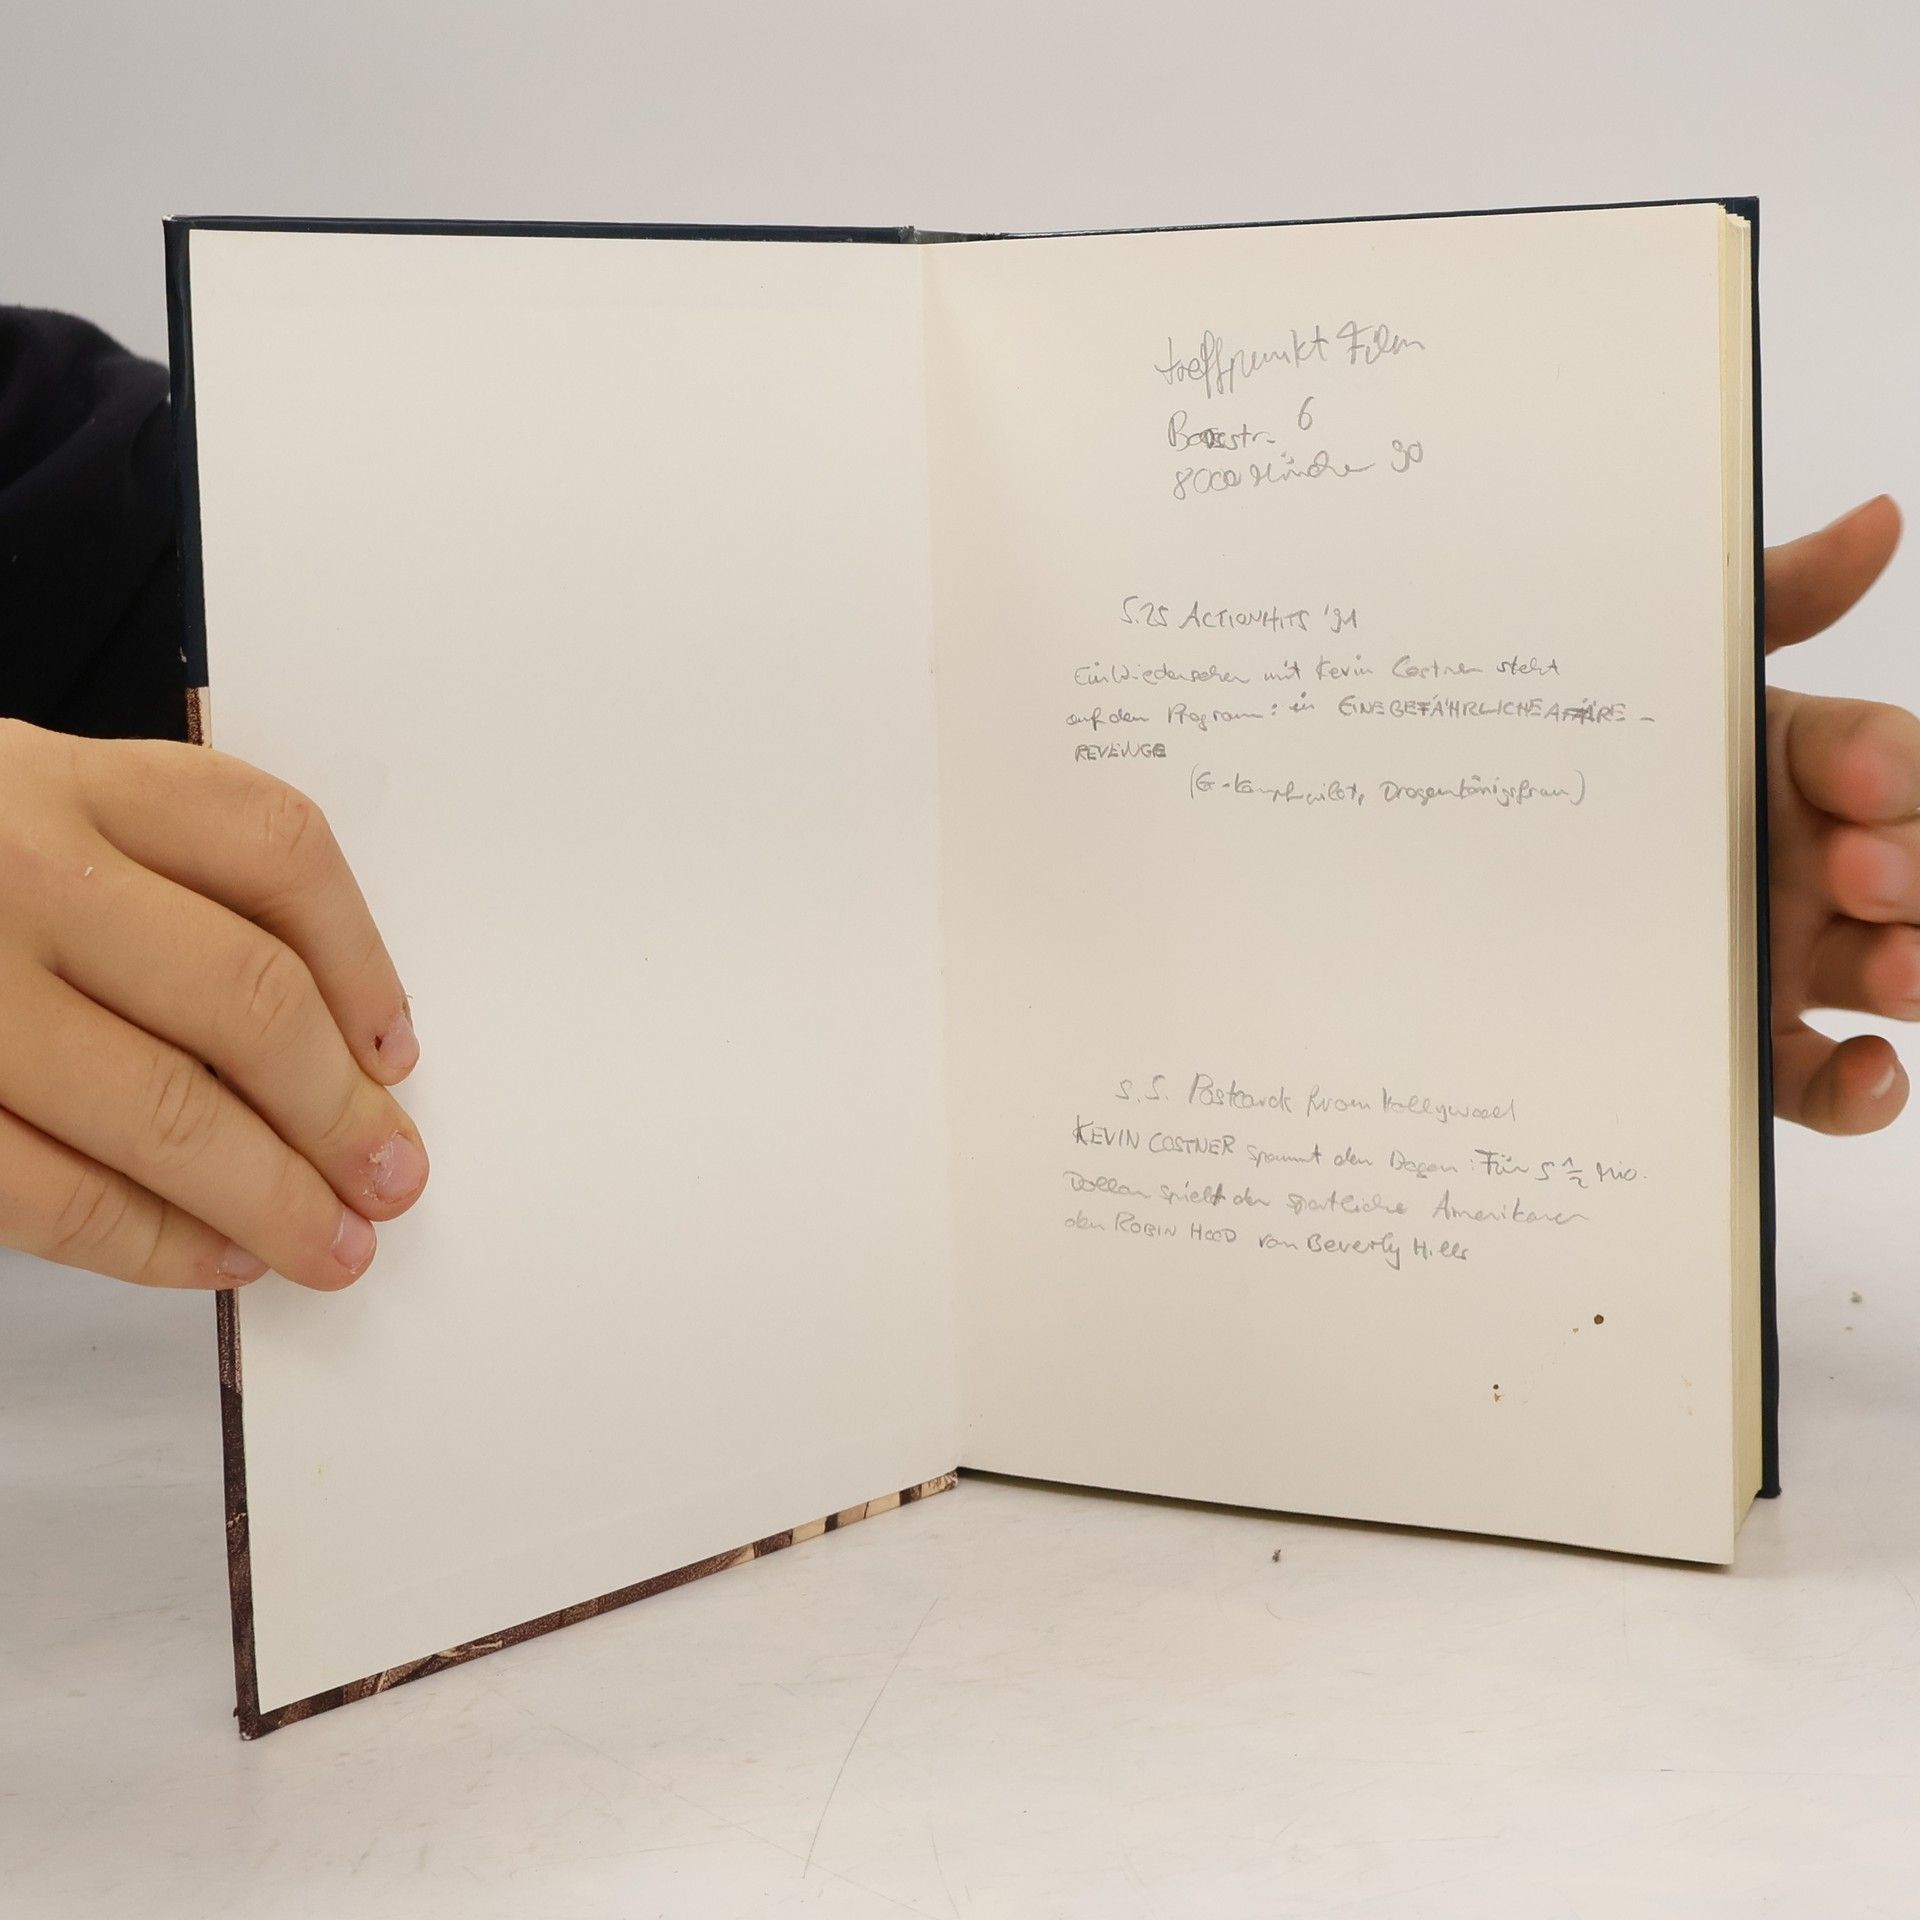 treffpunkt Film
str. 6
8000 München 90
S.25 ACTIONHITS '91
Ein Wiedersehen mit Kevin Costner steht
auf dem Programm: in EINE GEFÄHRLICHE AFFÄRE -
REVENGE
(G-Kampfpilot, Drogenkönigsfrau)
S.5. Postcards from Hollywood
KEVIN COSTNER spannt den Bogen: Für 5 1/2 Mio.
Dollar spielt der sportliche Amerikaner
den ROBIN HOOD von Beverly Hills